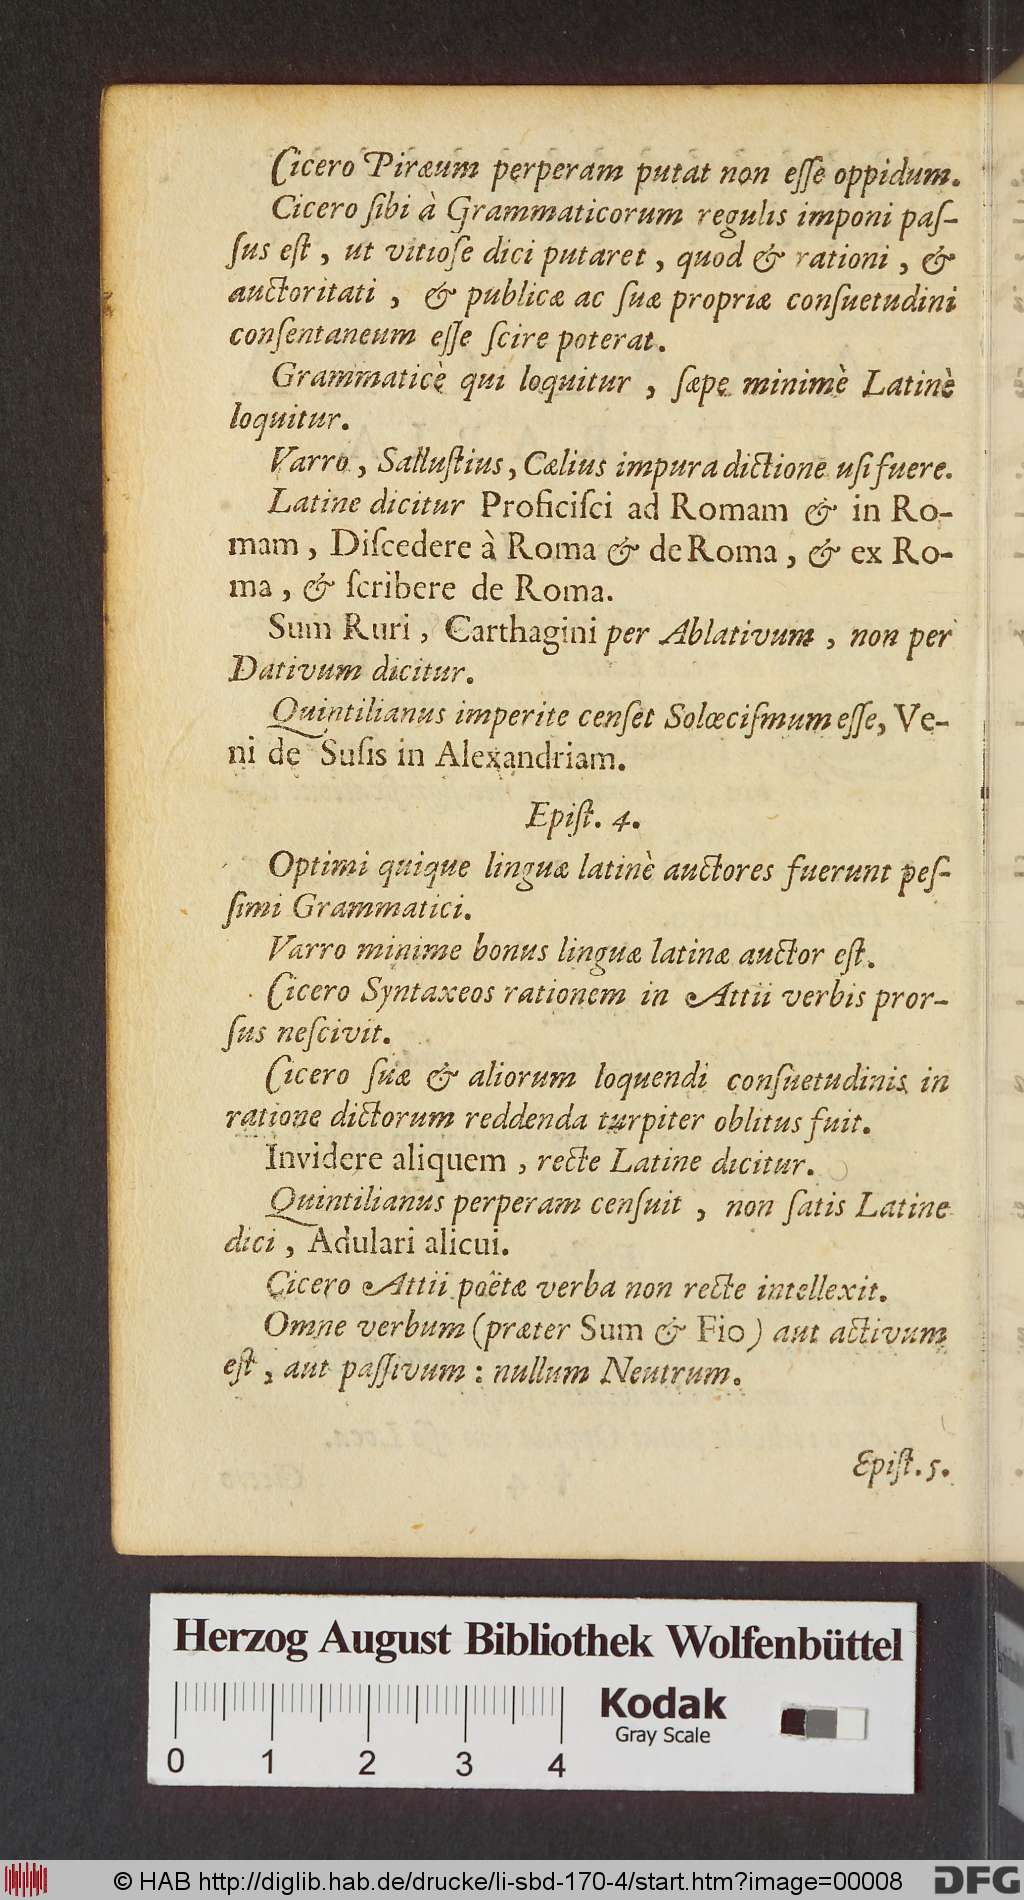 Cicero Piræum perperam putat non eſſe oppidum.
Cicero ſibi à Grammaticorum regulis imponi paſ-
ſus eſt, ut vitioſe dici putaret, quod & rationi, &
auctoritati, & publicæ ac ſuæ propriæ conſuetudini
conſentaneum eſſe ſcire poterat.
Grammaticè qui loquitur, ſæpe minimè Latinè
loquitur.
Varro, Salluſtius, Cælius impura dictione uſi fuere.
Latine dicitur Proficiſci ad Romam & in Ro-
mam, Diſcedere à Roma & de Roma, & ex Ro-
ma, & ſcribere de Roma.
Sum Ruri, Carthagini per Ablativum, non per
Dativum dicitur.
Quintilianus imperite cenſet Solœciſmum eſſe, Ve-
ni de Suſis in Alexandriam.
Epiſt. 4.
Optimi quique linguæ latinè auctores fuerunt peſ-
ſimi Grammatici.
Varro minime bonus linguæ latinæ auctor eſt.
Cicero Syntaxeos rationem in Attii verbis pror-
ſus neſcivit.
Cicero ſuæ & aliorum loquendi conſuetudinis in
ratione dictorum reddenda turpiter oblitus fuit.
Invidere aliquem, recte Latine dicitur.
Quintilianus perperam cenſuit, non ſatis Latine
dici, Adulari alicui.
Cicero Attii poëtæ verba non recte intellexit.
Omne verbum (præter Sum & Fio) aut activum
eſt, aut paſſivum: nullum Neutrum.
Epiſt. 5.
Herzog August Bibliothek Wolfenbüttel
Kodak
Gray Scale
0 1 2 3 4
© HAB http://diglib.hab.de/drucke/li-sbd-170-4/start.htm?image=00008
DFG